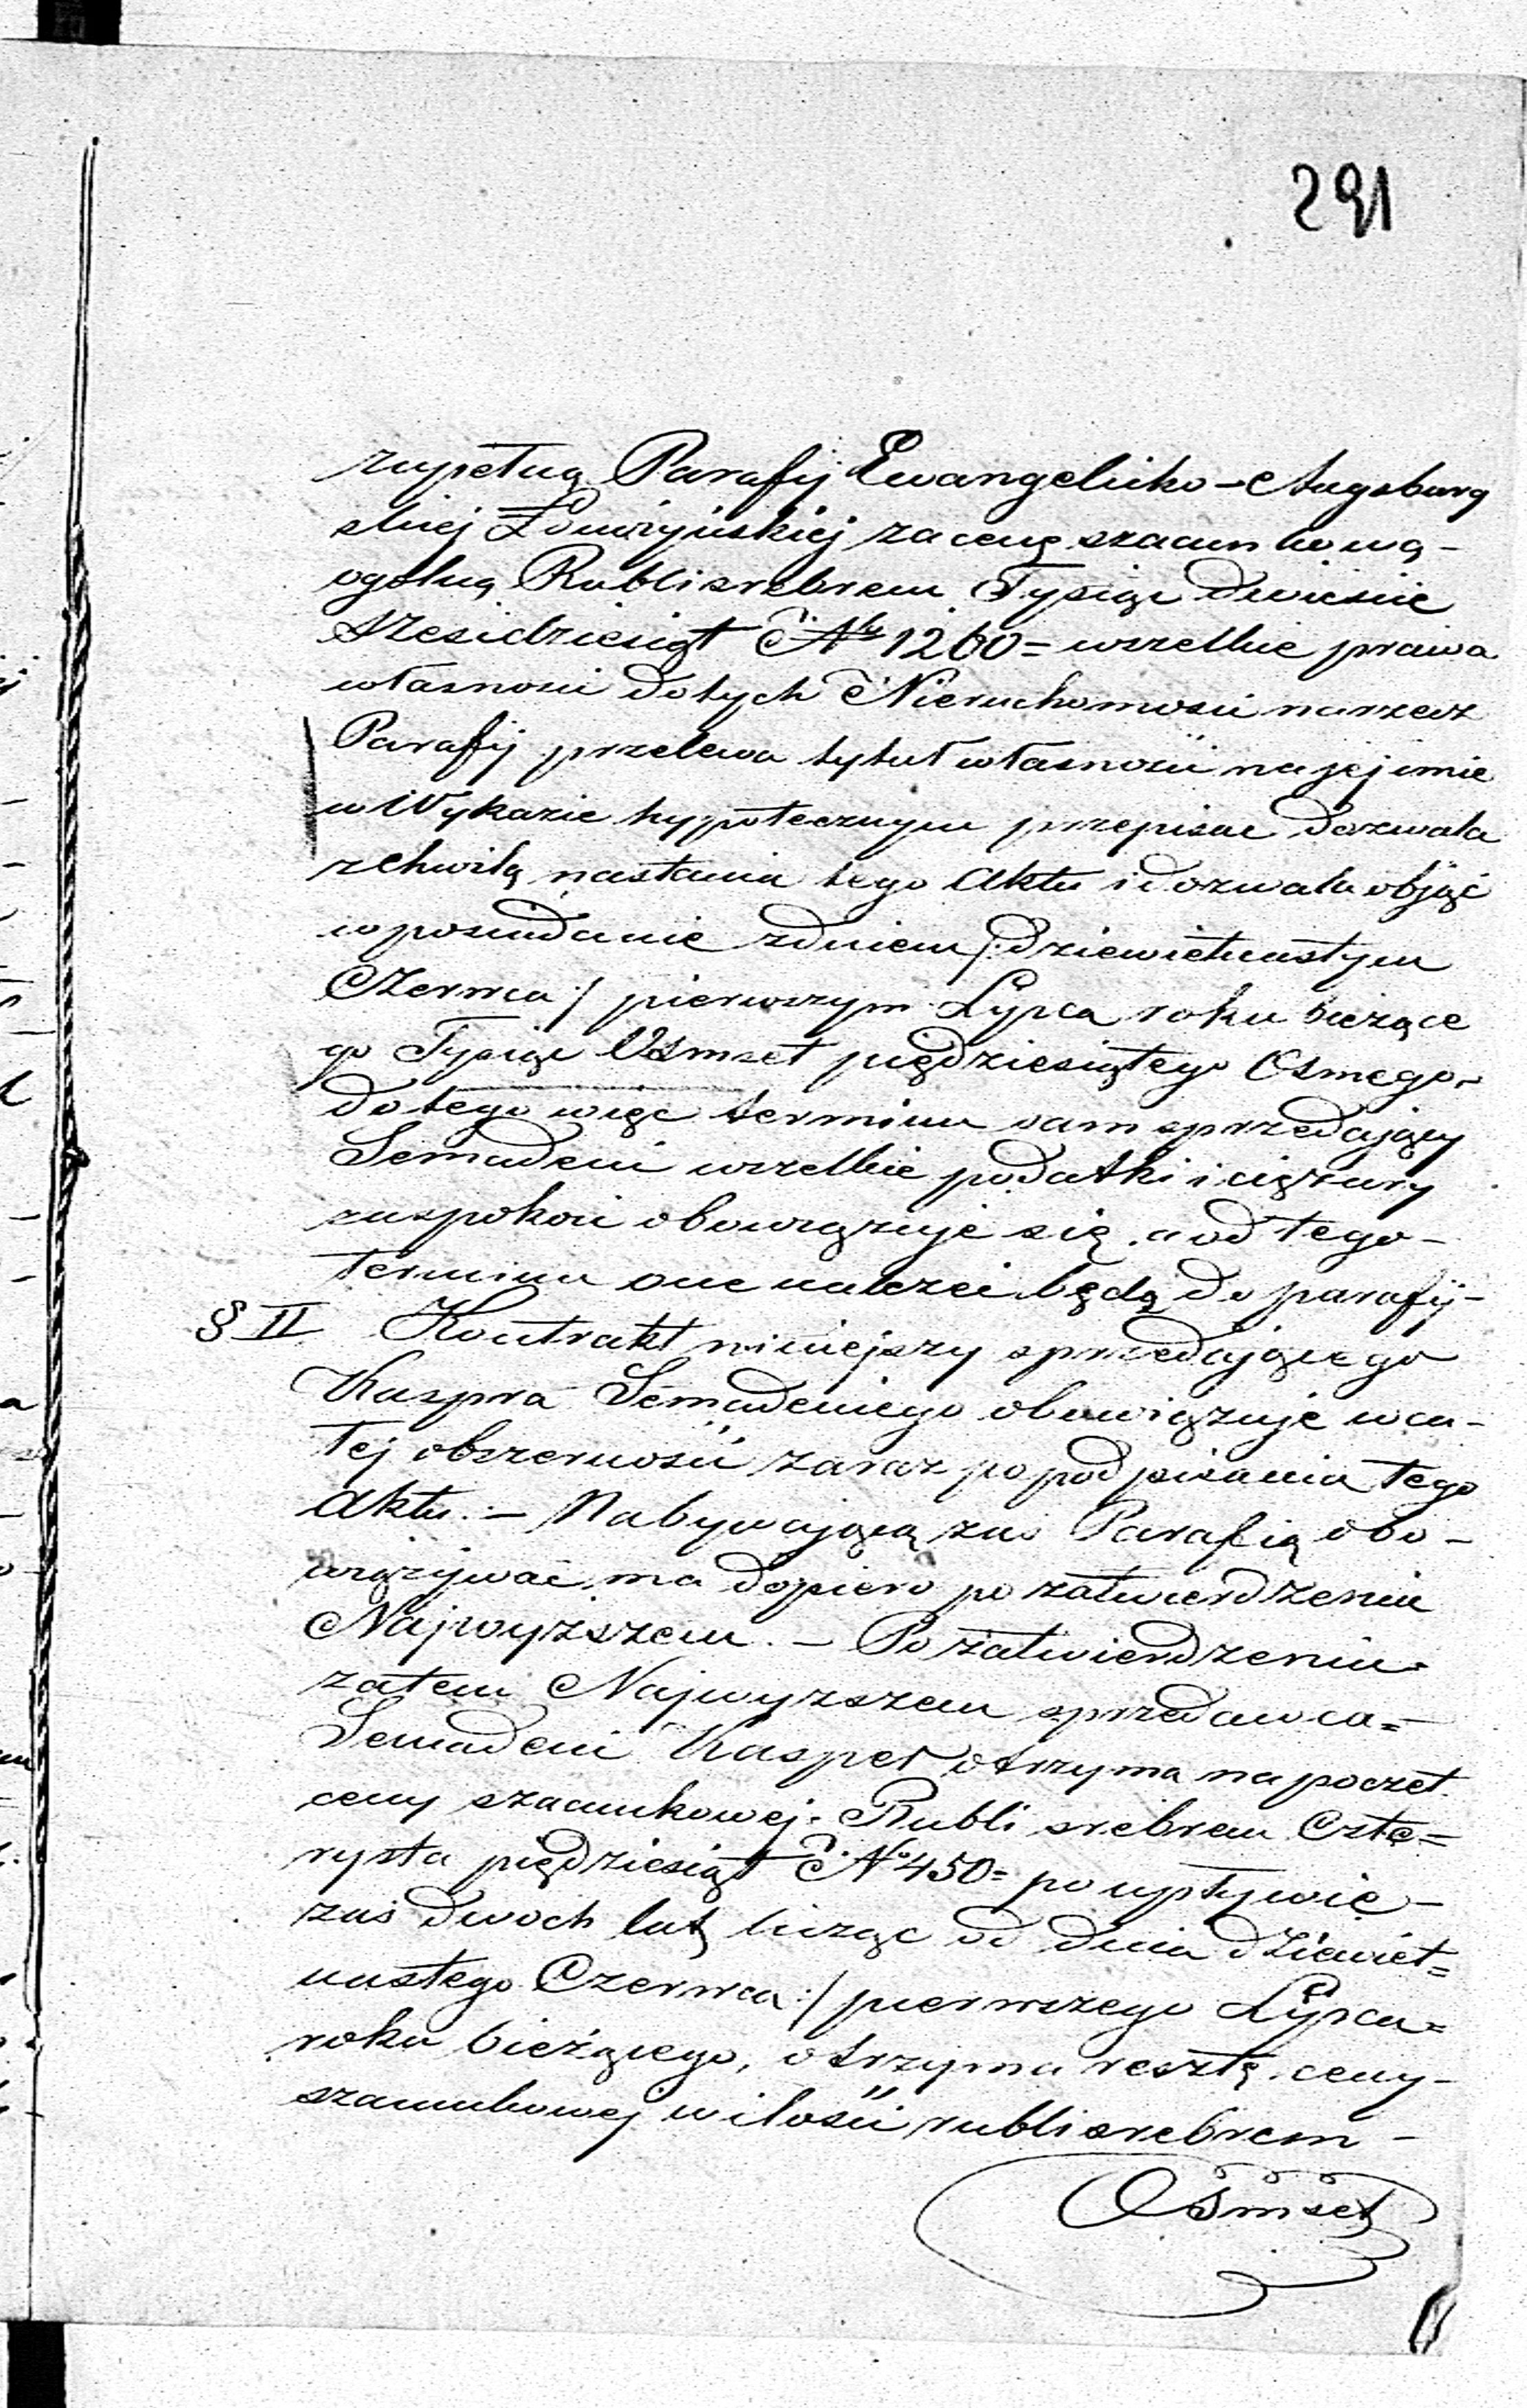 291
zupełną Parafij Ewangelicko-Augsburg
skiej Łomżyńskiej za cenę szacunkową -
ogólną Rubli srebrem Tysiąc dwieście
sześćdziesiąt No 1260 = wszelkie prawa
własności do tych Nieruchomości na rzecz
Parafij przelewa tytuł własności na jej imie
w Wykazie hypotecznym przepisać dozwala
z chwilą nastania tego Aktu i dozwala objąć
w posiadanie z dniem /: dziewiętnastym
Czerwca :/ pierwszym Lypca roku bieżące
go Tysiąc Osmset pięgdziesiątego Osmego -
do tego więc terminu sam sprzedający
Semadeni wszelkie podatki i ciężary
zaspokoić obowięzuje się, a od tego -
terminu one należeć będą do parafij -
§ II Kontrakt niniejszy sprzedającego
Kaspra Semadeniego obowięzuje w ca -
łej obszerności zaraz po podpisania tego
Aktu. - Nabywającą zaś Parafią obo -
wiązywać ma dopiero po zatwierdzeniu
Najwyższem. - Po zatwierdzeniu =
zatem Najwyzszem sprzedawca =
Semadeni Kasper otrzyma na poczet
ceny szacunkowej Rubli srebrem Czte =
rysta pięgdziesiąt No 450 = po upływie -
zaś dwoch lat licząc od dnia dziewięt =
nastego Czerwca :/ pierwszego Lypca =
roku bieżącego, otrzyma resztę ceny -
szacunkowej w ilości rubli srebrem -
Ośmset